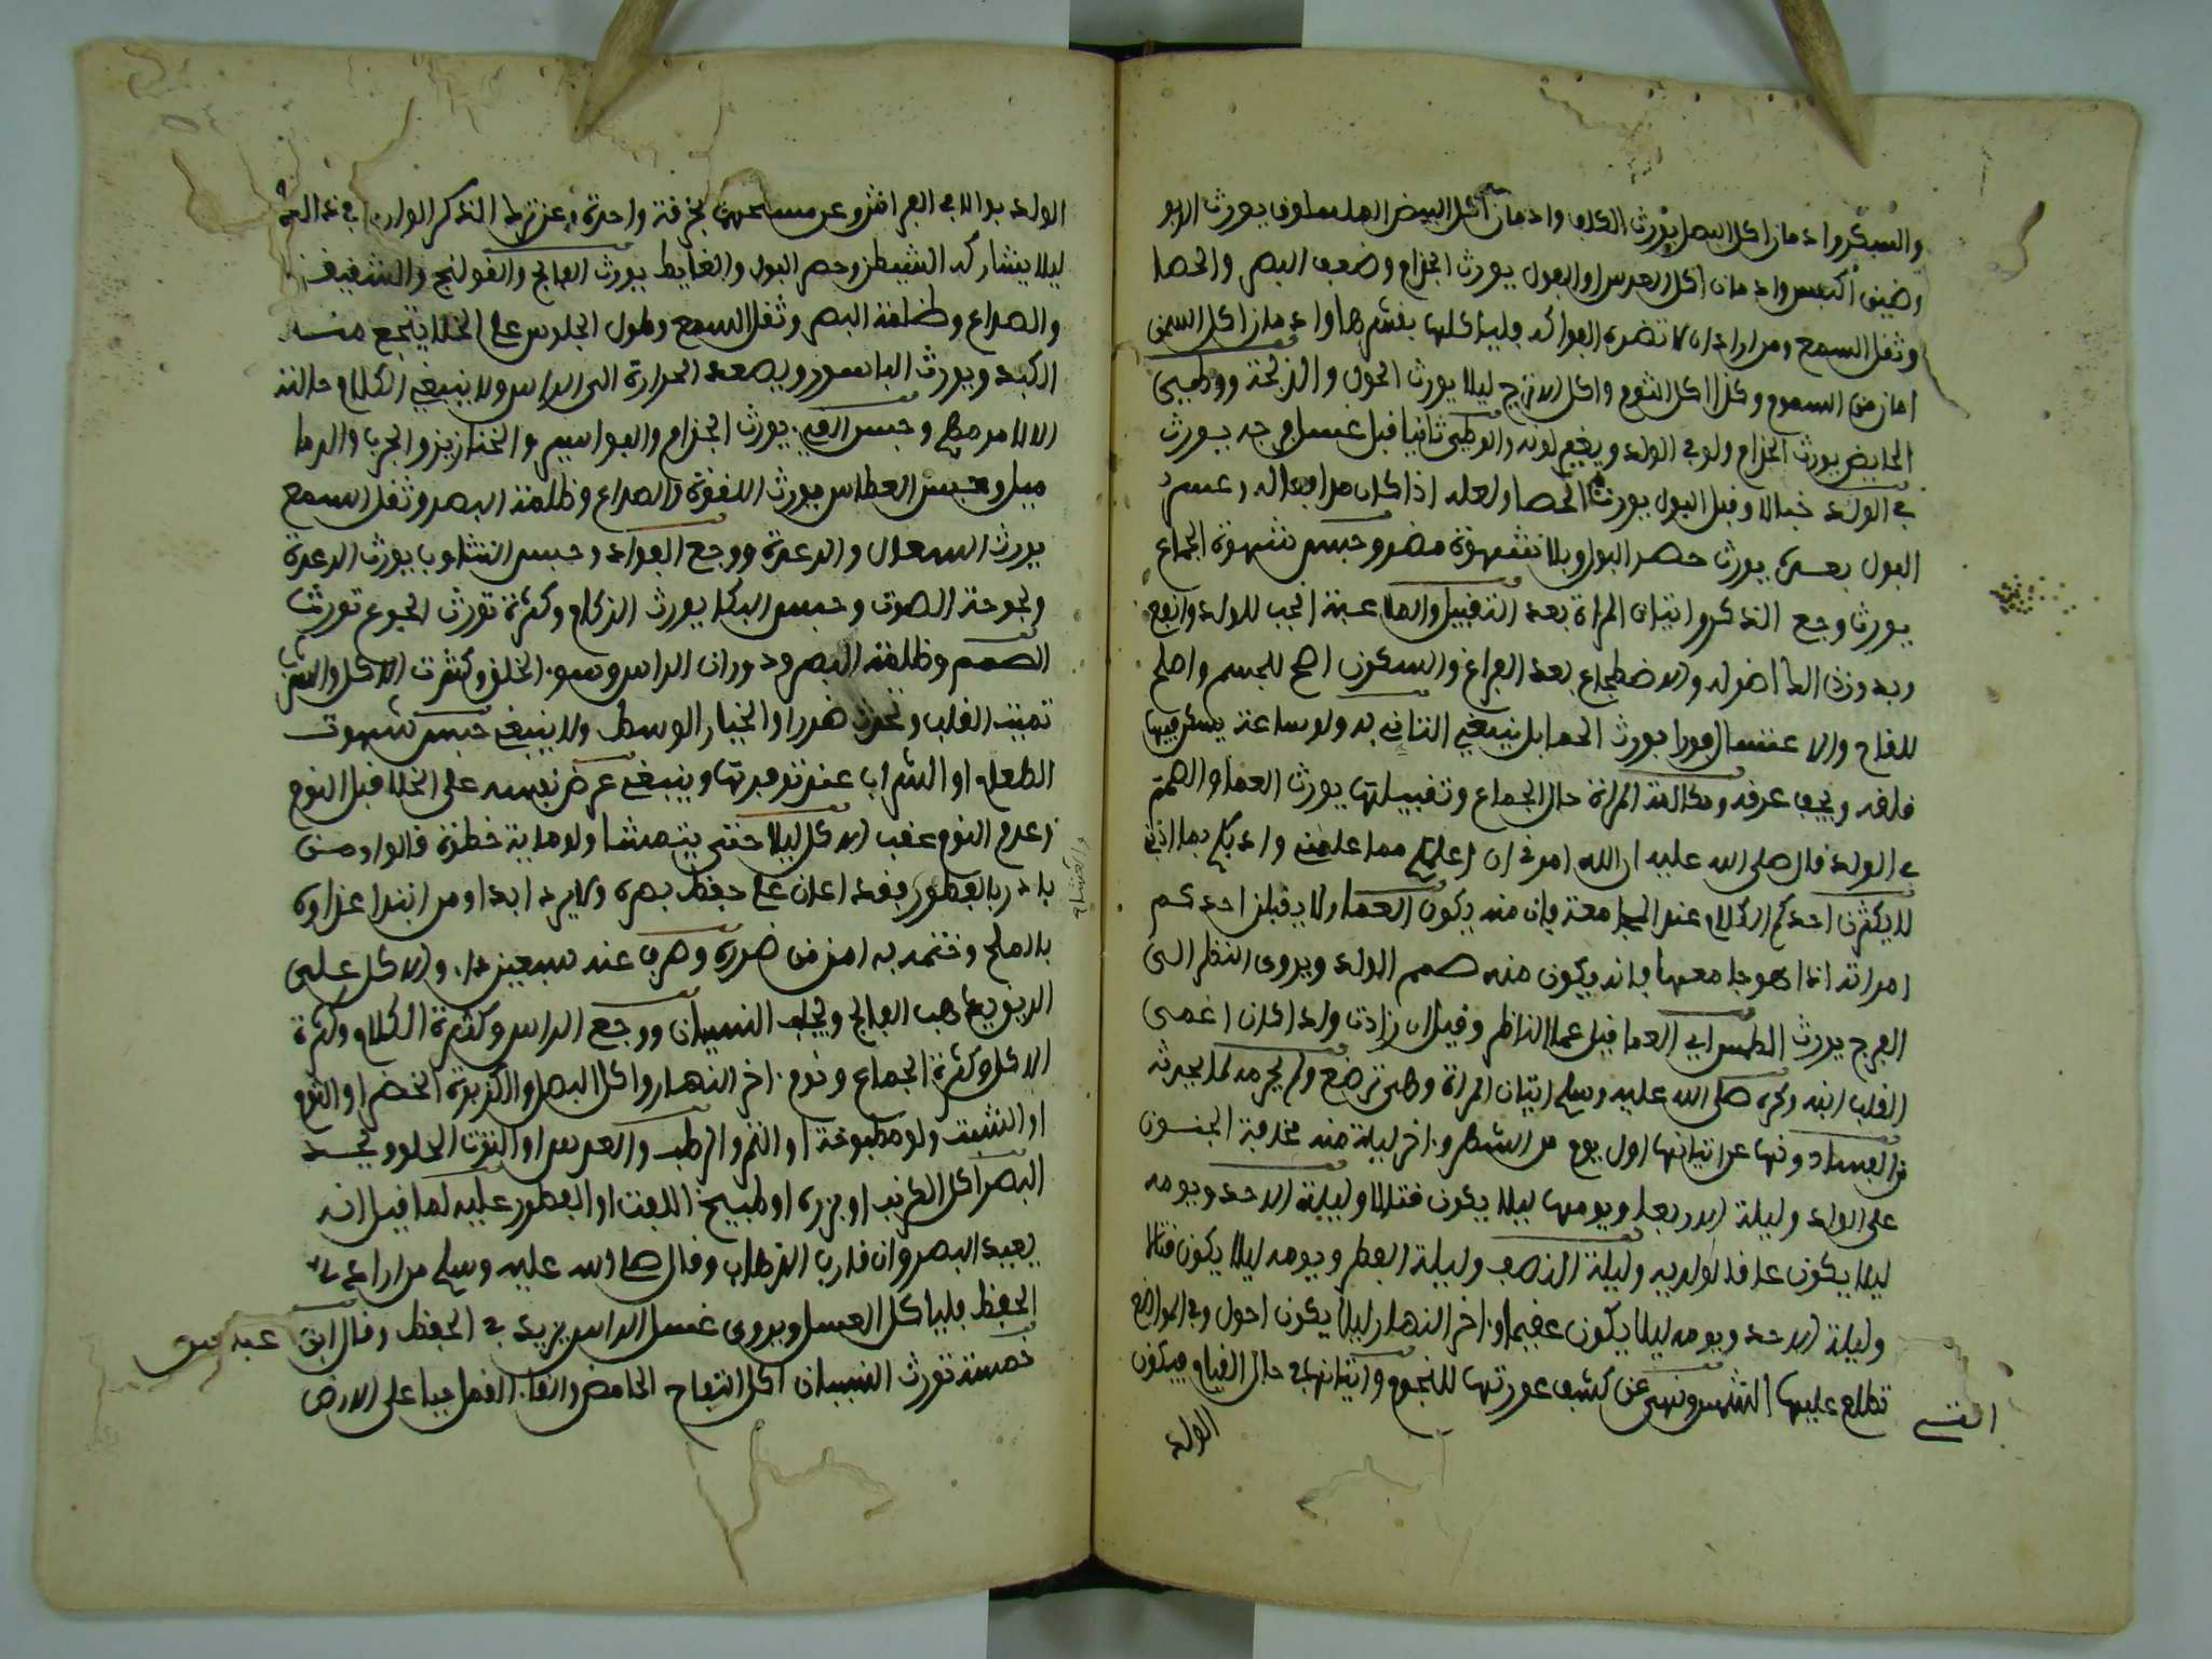 والسكر وادمان اكل البصل يورث الكلف وادمان اكل البيض المسلوق يورث الربو
وضيق النفس وادمان اكل العدس او الفول يورث الجذام وضعف البصر والحصا
وثقل السمع ومن اراد ان لا تضره الفواكه فلياكلها بقشرها وادمان اكل السمن
امان من السموم وكذا اكل الثوم واكل الاترج ليلا يورث الحول والذبحة ووطيى
الحايض يورث الجذام ولو في الولد ويقبح لونه والوطى ثانيا قبل غسل فرجه يورث
في الولد خبالا وقبل البول يورث الحصا ولعله اذا كان
البول بعسره يورث حصر البول وبلا شهوة مضر وحبس شهوة الجماع
يورث وجع الذكر واتيان المراة بعد التقبيل والملاعبة انجب للولد وانفع
وبدون ذلك اضر له والاضطجاع بعد الفراغ والسكون اصح للجسم واصلح
للقاح والاغتسال فورا يورث الحما بل ينبغي التاني به ولو ساعة يسكن فيها
قلقه ويجف عرقه ومكالمة المراة حال الجماع وتقبيلها يورث العما والصمم
في الولد قال صلى الله عليه ان الله امرني ان اعلمكم مما علمني واد بكم بما ادبني
لا يكثرن احدكم الكلام عند المجامعة فان منه يكون العما ولا يقبلن احدكم
امراته اذا هو جامعها فانه يكون منه صمم الولد ويروى النظر الى
الفرج يورث الطمس اي العما قيل عما الناظر وقيل ان زادت ولدا كان اعمى
القلب انتهى وكره صلى الله عليه وسلم اتيان المراة وهي ترضع ولم يحرمه لما يحدثه
من الفساد ونها عن اتيانها اول يوم من الشهر واخر ليلة منه مخافة الجنون
على الولد وليلة الاربعا ويومها ليلا يكون قتالا وليلة الاحد ويومه
ليلا يكون عاقا لوالديه وليلة النصف وليلة الفطر ويومه ليلا يكون قتالا
وليلة الاحد ويومه ليلا يكون عقيما واخر النهار ليلا يكون احول وفي المواضع
التي تطلع عليها الشمس ونهى عن كشف عورتها للنجوم واتيانها في حال القيام فيكون
الولد
الولد بوالا في الفراش وعن مسحهما بخرقة واحدة وعن ترك الذكر الوارد في
ليلا يشاركه الشيطن وحصر البول والغايط يورث الفالج والقولنج والشقيقة
والصداع وظلمة البصر وثقل السمع وطول الجلوس على الخلا يتجع منه
الكبد ويورث الباسور ويصعد الحرارة الى الراس ولا ينبغي الكلام حالته
الا لامر مهم وحبس القيء يورث الجذام والبواسير والخنازير والجرب والدما
ميل وحبس العطاس يورث اللقوة والصداع وظلمة البصر وثقل السمع
يورث السعال والرعدة ووجع الفواد وحبس التثاوب يورث الرعدة
وبحوحة الصوت وحبس البكا يورث الزكام وكثرة تورث الجوع تورث
الصمم وظلمة البصر ودوران الراس وسوء الخلق وكثرت الاكل والشرب
تميت القلب وتحدث ضررا والخيار الوسط ولا ينبغي حبس شهوت
الطعام او الشراب عند توفرتها وينبغي عرض نفسه على الخلا قبل النوم
وعدم النوم عقب الاكل ليلا حتى يتمشا ولو ماية خطوة قالوا ومن
بادر بالفطور فقد اعان على حفظ بصره ولا يرمد ابدا ومن ابتدا غداوه
بالملح وختمه به امن من ضرره وصرف عنه سبعين داء والاكل على
الريق يذهب الفالج ويجلب النسيان ووجع الراس وكثرة الكلام وكثرة
الاكل وكثرة الجماع ونوم اخر النهار واكل البصل والكزبرة الخضرا والثوم
او الشبت ولو مطبوخة او التمر الرطب والعدس او التوت الحلو ويحسد
البصر اكل الكرنب او بزره او طبيخ اللفت او الفطور عليه لما قيل انه
يعيد البصر وان قارب الذهاب وقال صلى الله عليه وسلم من اراد
الحفظ فلياكل العسل ويروى غسل الراس يزيد في الحفظ وقال ابن عبد
خمسة تورث النسيان اكل التفاح الحامض والقاء القمل حيا على الارض